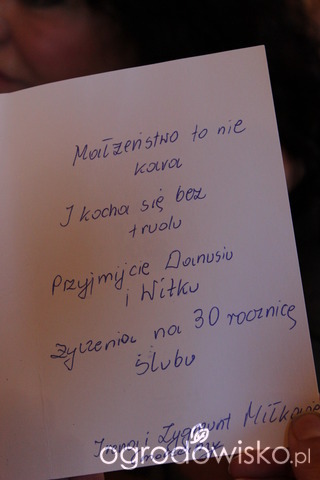 Małżeństwo to nie
kara
I kocha się bez
trudu
Przyjmijcie Danusiu
i Witku
Życzenia na 30 rocznicę
Ślubu
Irena i Zygmunt
ogrodowisko.pl